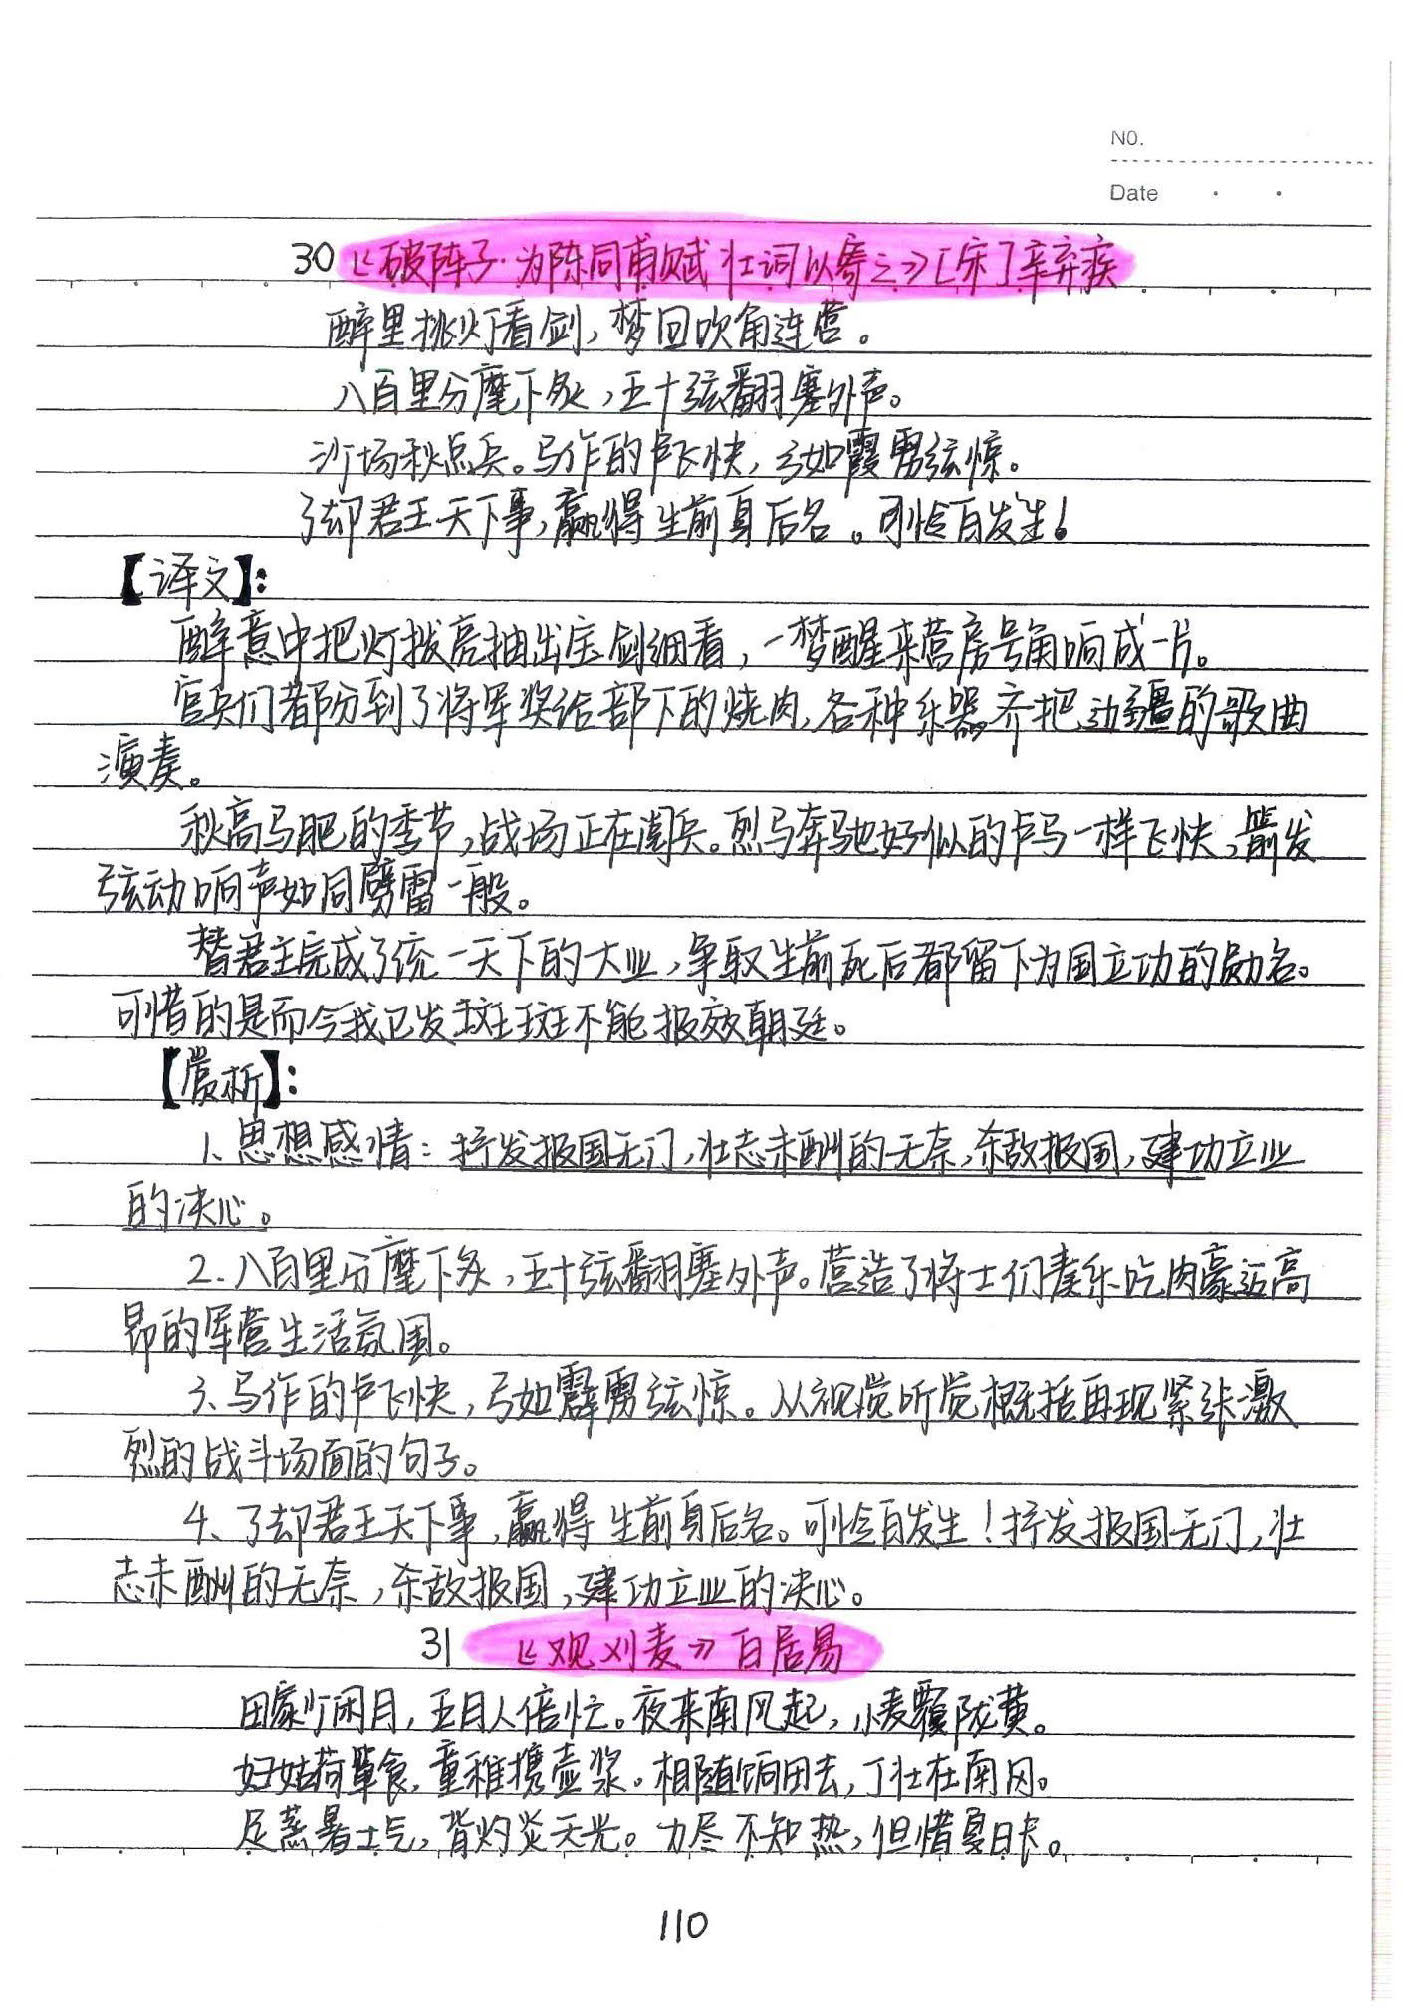 NO.
Date
30 《破阵子·为陈同甫赋壮词以寄之》[宋]辛弃疾
醉里挑灯看剑,梦回吹角连营。
八百里分麾下炙,五十弦翻塞外声。
沙场秋点兵。马作的卢飞快,弓如霹雳弦惊。
了却君王天下事,赢得生前身后名。可怜白发生!
【译文】:
醉意中把灯拨亮抽出宝剑细看,一梦醒来营房号角响成一片。
官兵们都分到了将军奖给部下的烧肉,各种乐器齐把边疆的歌曲
演奏。
秋高马肥的季节,战场正在阅兵。烈马奔驰好似的卢马一样飞快,箭发
弦动响声如同劈雷一般。
替君主完成了统一天下的大业,争取生前死后都留下为国立功的勋名。
可惜的是而今我已发斑斑不能报效朝廷。
【赏析】:
1、思想感情:抒发报国无门,壮志未酬的无奈,杀敌报国,建功立业
的决心。
2、八百里分麾下炙,五十弦翻塞外声。营造了将士们奏乐吃肉豪迈高
昂的军营生活氛围。
3、马作的卢飞快,弓如霹雳弦惊。从视觉听觉概括再现紧张激
烈的战斗场面的句子。
4、了却君王天下事,赢得生前身后名。可怜白发生!抒发报国无门,壮
志未酬的无奈,杀敌报国,建功立业的决心。
31 《观刈麦》白居易
田家少闲月,五月人倍忙。夜来南风起,小麦覆陇黄。
妇姑荷箪食,童稚携壶浆。相随饷田去,丁壮在南冈。
足蒸暑土气,背灼炎天光。力尽不知热,但惜夏日长。
110